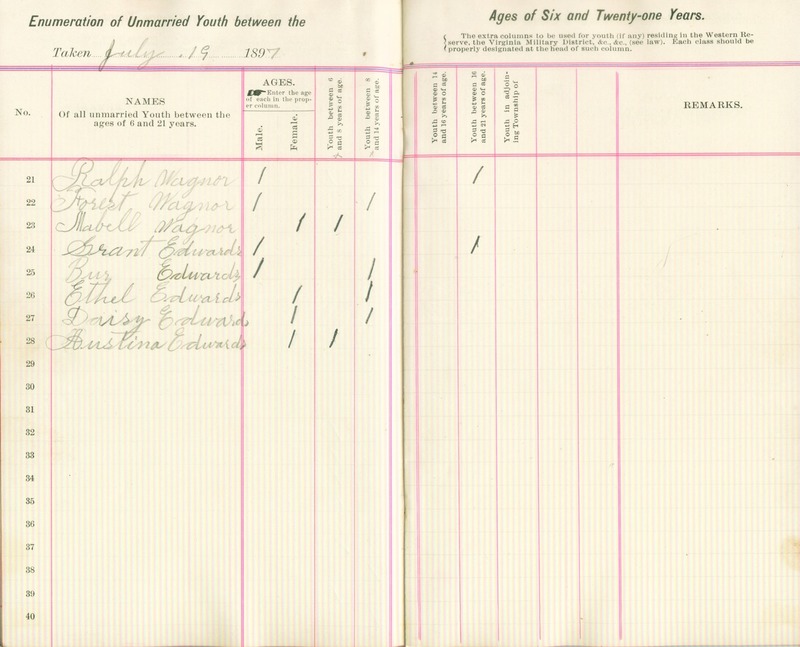 Enumeration of Unmarried Youth between the
Ages of Six and Twenty-one Years.
Taken July 19 1897
The extra columns to be used for youth (if any) residing in the Western Re-
serve, the Virginia Military District, &c., &c., (see law). Each class should be
properly designated at the head of such column.
No.
NAMES
Of all unmarried Youth between the
ages of 6 and 21 years.
AGES.
Enter the age
of each in the prop-
er column.
Male.
Female.
Youth between 6
and 8 years of age.
Youth between 8
and 14 years of age.
Youth between 14
and 16 years of age.
Youth between 16
and 21 years of age.
Youth in adjoin-
ing Township of
REMARKS.
21 Ralph Wagnor / /
22 Forest Wagnor / /
23 Mabell Wagnor / /
24 Grant Edwards / /
25 Bur Edwards / /
26 Ethel Edwards / /
27 Daisy Edwards / /
28 Austina Edwards / /
29
30
31
32
33
34
35
36
37
38
39
40